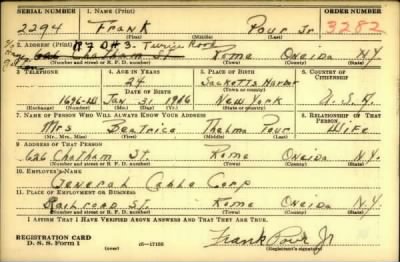 SERIAL NUMBER 1. NAME (Print) ORDER NUMBER
2294 Frank Pour Jr 3282
(First) (Middle) (Last)
2. ADDRESS (Print) R F D # 3. Turin Road
626 Chatham St Rome Oneida N.Y
(Number and street or R. F. D. number) (Town) (County) (State)
3. TELEPHONE 4. AGE IN YEARS 5. PLACE OF BIRTH 6. COUNTRY OF CITIZENSHIP
24 Sacketts Harbor
DATE OF BIRTH (Town or county)
1696-W Jan 31 1916 New York U.S.A.
(Exchange) (Number) (Mo.) (Day) (Yr.) (State or country)
7. NAME OF PERSON WHO WILL ALWAYS KNOW YOUR ADDRESS 8. RELATIONSHIP OF THAT PERSON
Mrs Beatrice Thelma Pour Wife
(Mr., Mrs., Miss) (First) (Middle) (Last)
9. ADDRESS OF THAT PERSON
626 Chatham St. Rome Oneida N.Y.
(Number and street or R. F. D. number) (Town) (County) (State)
10. EMPLOYER'S NAME
General Cable Corp
11. PLACE OF EMPLOYMENT OR BUSINESS
Railroad St. Rome Oneida N.Y.
(Number and street or R. F. D. number) (Town) (County) (State)
I AFFIRM THAT I HAVE VERIFIED ABOVE ANSWERS AND THAT THEY ARE TRUE.
REGISTRATION CARD
D. S. S. Form 1 (over) 16-17105 Frank Pour Jr